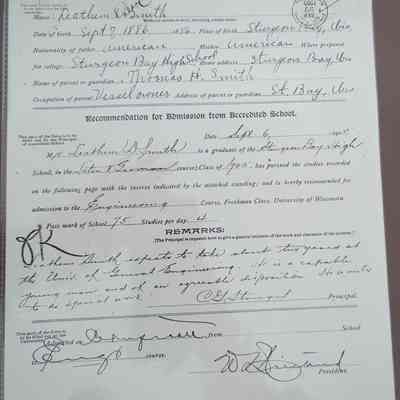 Name Leathem D. Smith
Date of birth Sept 7, 1886 Place of birth Sturgeon Bay, Wis
Nationality of father American Mother American Where prepared
for college Sturgeon Bay High School Home address Sturgeon Bay, Wis
Name of parent or guardian Thomas H. Smith
Occupation of parent Vessel owner Address of parent or guardian St. Bay, Wis
Recommendation for Admission from Accredited School.
Date Sept 6
Mr Leathem D. Smith is a graduate of the Sturgeon Bay High
School, in the German course; Class of '05, has pursued the studies recorded
on the following page with the success indicated by the attached standing; and is hereby recommended for
admission to the Engineering Course, Freshman Class, University of Wisconsin
Pass mark of School 75 Studies per day 4
OK
REMARKS:
(The Principal is requested here to give a general estimate of the work and character of the student.)
Leathem Smith expects to take about two years at
the Univ. of General Engineering. He is a capable
young man and of an agreeable disposition. He wants
to do special work.
Principal.
Admitted on from School
President.